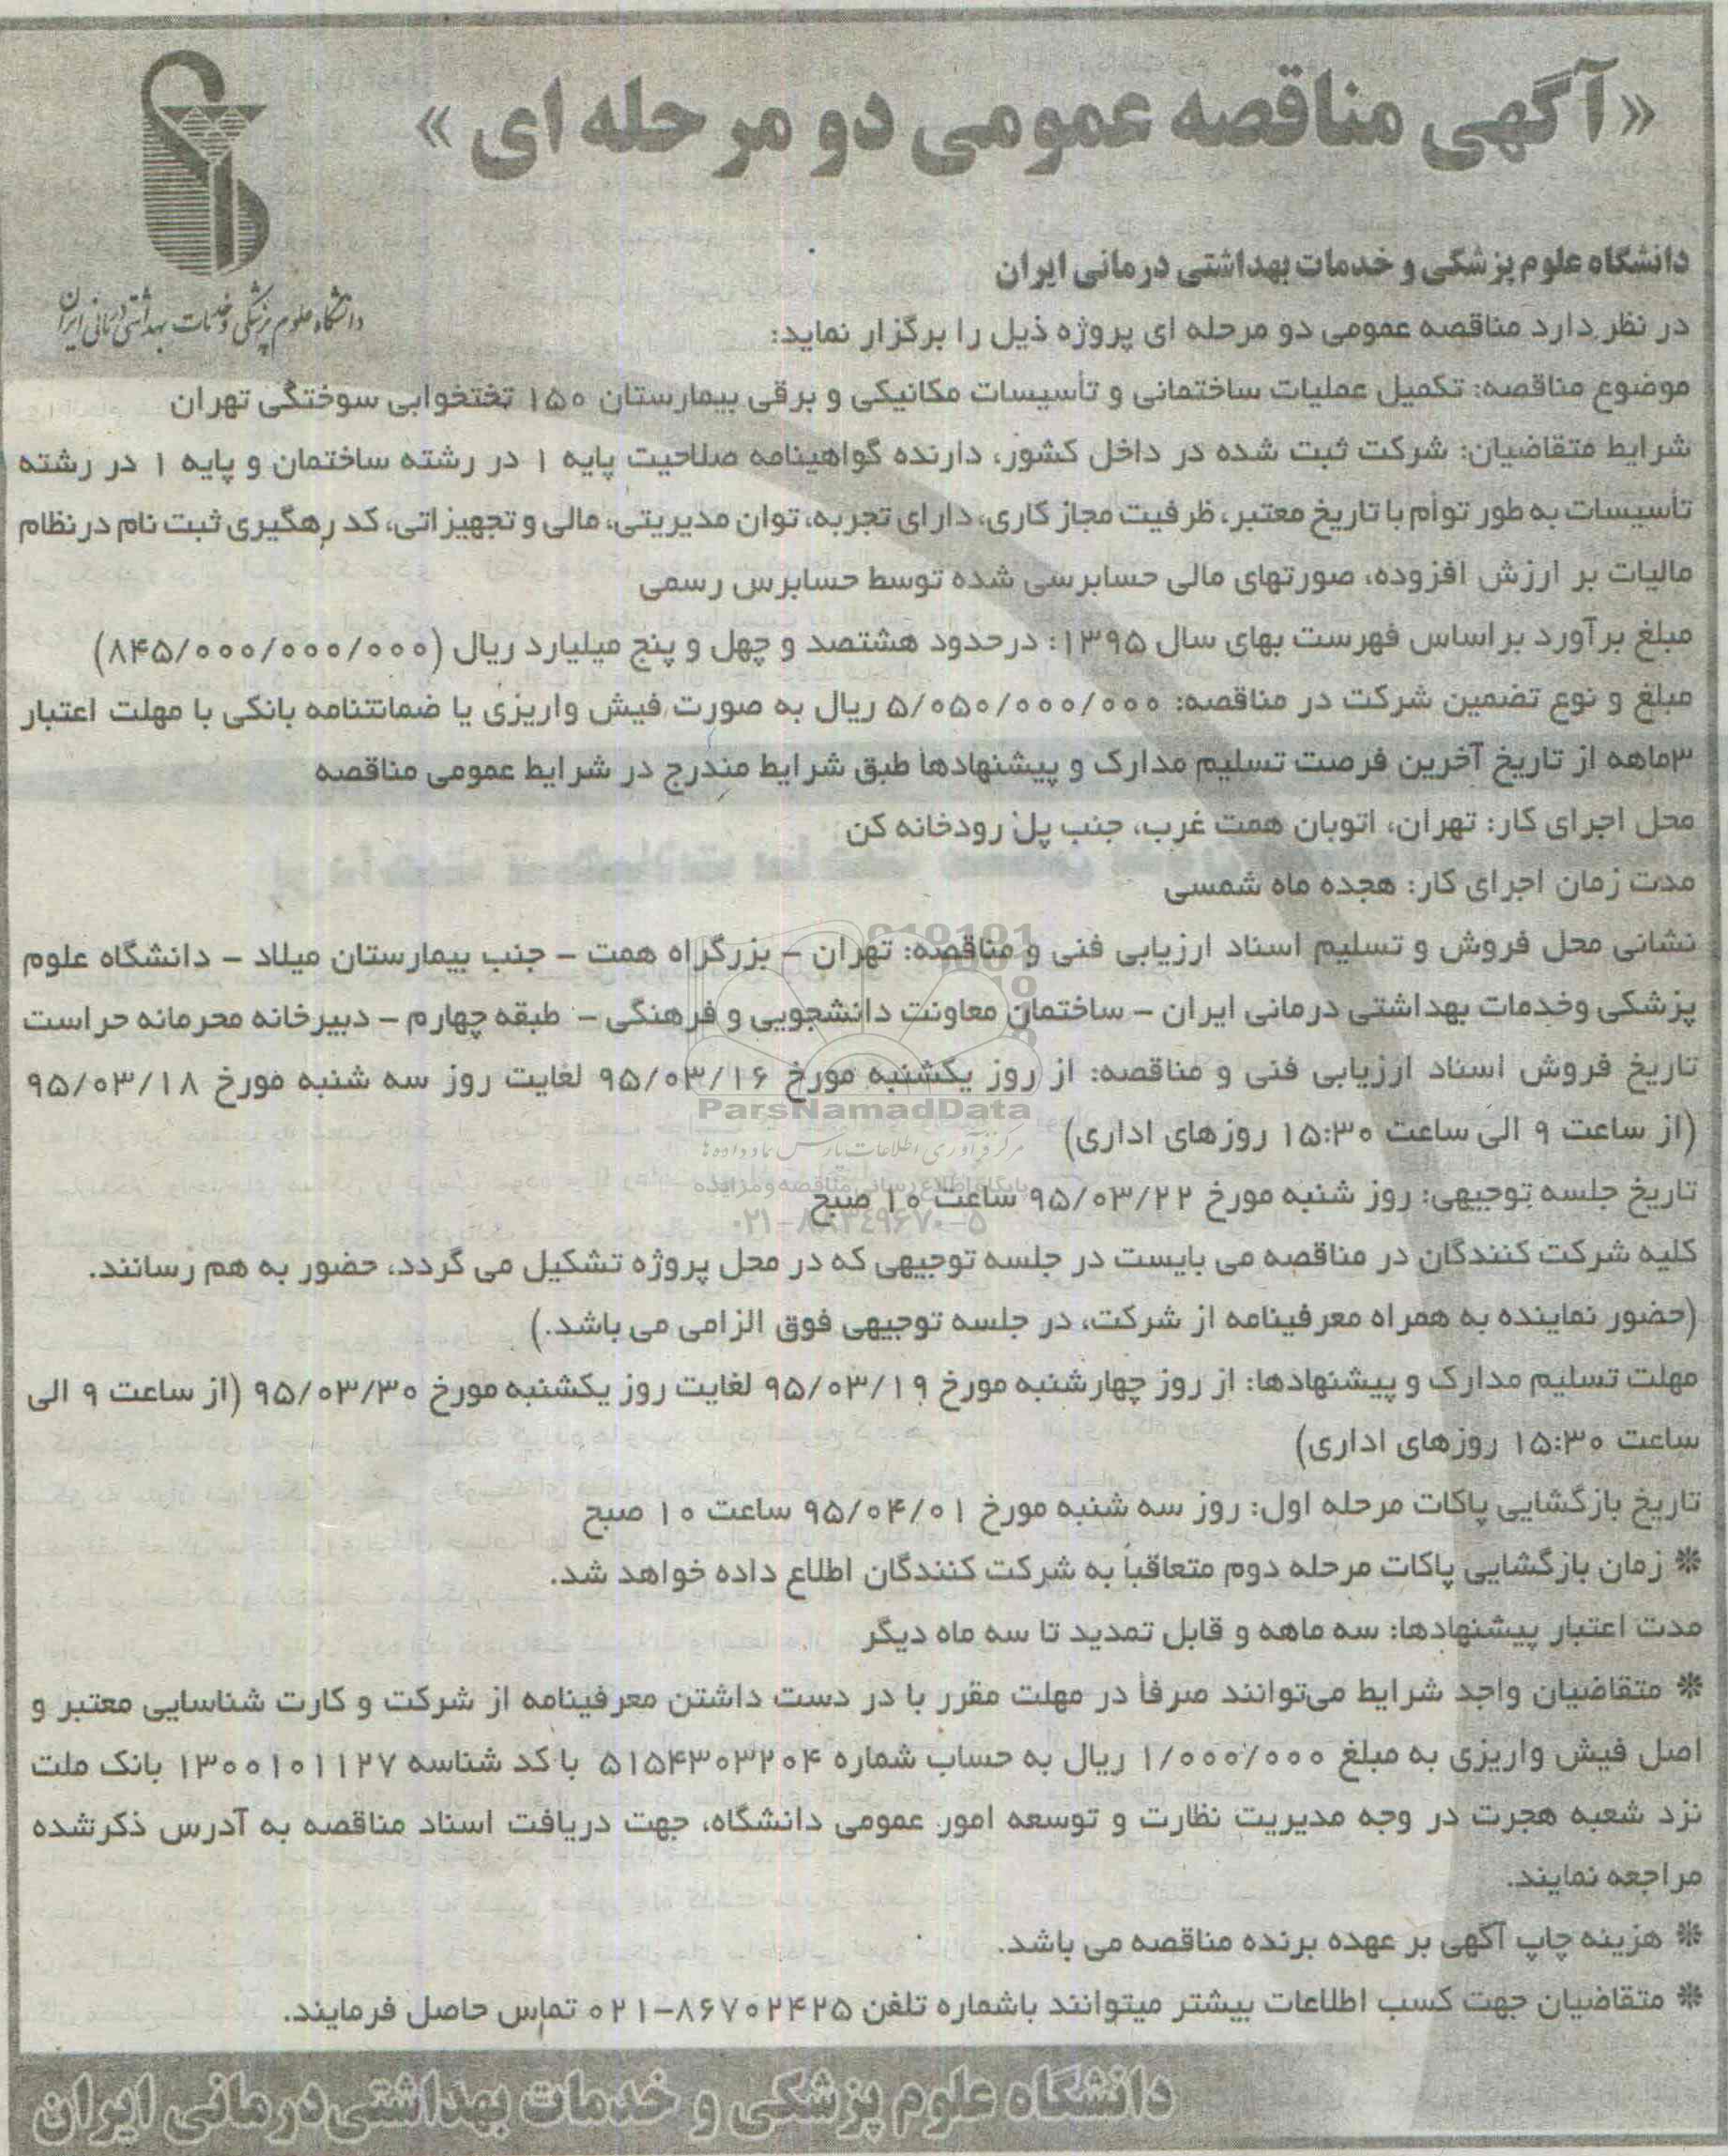 «آگهی مناقصه عمومی دو مرحله ای»
دانشگاه علوم پزشکی و خدمات بهداشتی درمانی ایران
دانشگاه علوم پزشکی و خدمات بهداشتی درمانی ایران
در نظر دارد مناقصه عمومی دو مرحله ای پروژه ذیل را برگزار نماید:
موضوع مناقصه: تکمیل عملیات ساختمانی و تأسیسات مکانیکی و برقی بیمارستان ۱۵۰ تختخوابی سوختگی تهران
شرایط متقاضیان: شرکت ثبت شده در داخل کشور، دارنده گواهینامه صلاحیت پایه ۱ در رشته ساختمان و پایه ۱ در رشته
تأسیسات به طور توأم با تاریخ معتبر، ظرفیت مجاز کاری، دارای تجربه، توان مدیریتی، مالی و تجهیزاتی، کد رهگیری ثبت نام در نظام
مالیات بر ارزش افزوده، صورتهای مالی حسابرسی شده توسط حسابرس رسمی
مبلغ برآورد براساس فهرست بهای سال ۱۳۹۵: درحدود هشتصد و چهل و پنج میلیارد ریال (۸۴۵/۰۰۰/۰۰۰/۰۰۰)
مبلغ و نوع تضمین شرکت در مناقصه: ۵/۰۵۰/۰۰۰/۰۰۰ ریال به صورت فیش واریزی یا ضمانتنامه بانکی با مهلت اعتبار
۳ماهه از تاریخ آخرین فرصت تسلیم مدارک و پیشنهادها طبق شرایط مندرج در شرایط عمومی مناقصه
محل اجرای کار: تهران، اتوبان همت غرب، جنب پل رودخانه کن
مدت زمان اجرای کار: هجده ماه شمسی
نشانی محل فروش و تسلیم اسناد ارزیابی فنی و مناقصه: تهران – بزرگراه همت – جنب بیمارستان میلاد – دانشگاه علوم
پزشکی وخدمات بهداشتی درمانی ایران – ساختمان معاونت دانشجویی و فرهنگی – طبقه چهارم – دبیرخانه محرمانه حراست
تاریخ فروش اسناد ارزیابی فنی و مناقصه: از روز یکشنبه مورخ ۹۵/۰۳/۱۶ لغایت روز سه شنبه مورخ ۹۵/۰۳/۱۸
ParsNamadData
(از ساعت ۹ الی ساعت ۱۵:۳۰ روزهای اداری)
مرکز فرآوری اطلاعات پارس نماد داده ها
پایگاه اطلاع رسانی مناقصه و مزایده
تاریخ جلسه توجیهی: روز شنبه مورخ ۹۵/۰۳/۲۲ ساعت ۱۰ صبح
۰۲۱-۸۸۳۴۹۶۷۰-۵
کلیه شرکت کنندگان در مناقصه می بایست در جلسه توجیهی که در محل پروژه تشکیل می گردد، حضور به هم رسانند.
(حضور نماینده به همراه معرفینامه از شرکت، در جلسه توجیهی فوق الزامی می باشد.)
مهلت تسلیم مدارک و پیشنهادها: از روز چهارشنبه مورخ ۹۵/۰۳/۱۹ لغایت روز یکشنبه مورخ ۹۵/۰۳/۳۰ (از ساعت ۹ الی
ساعت ۱۵:۳۰ روزهای اداری)
تاریخ بازگشایی پاکات مرحله اول: روز سه شنبه مورخ ۹۵/۰۴/۰۱ ساعت ۱۰ صبح
* زمان بازگشایی پاکات مرحله دوم متعاقباً به شرکت کنندگان اطلاع داده خواهد شد.
مدت اعتبار پیشنهادها: سه ماهه و قابل تمدید تا سه ماه دیگر
* متقاضیان واجد شرایط می‌توانند صرفاً در مهلت مقرر با در دست داشتن معرفینامه از شرکت و کارت شناسایی معتبر و
اصل فیش واریزی به مبلغ ۱/۰۰۰/۰۰۰ ریال به حساب شماره ۵۱۵۴۳۰۳۲۰۴ با کد شناسه ۱۳۰۰۱۰۱۱۲۷ بانک ملت
نزد شعبه هجرت در وجه مدیریت نظارت و توسعه امور عمومی دانشگاه، جهت دریافت اسناد مناقصه به آدرس ذکرشده
مراجعه نمایند.
* هزینه چاپ آگهی بر عهده برنده مناقصه می باشد.
* متقاضیان جهت کسب اطلاعات بیشتر میتوانند باشماره تلفن ۸۶۷۰۲۴۲۵-۰۲۱ تماس حاصل فرمایند.
دانشگاه علوم پزشکی و خدمات بهداشتی درمانی ایران